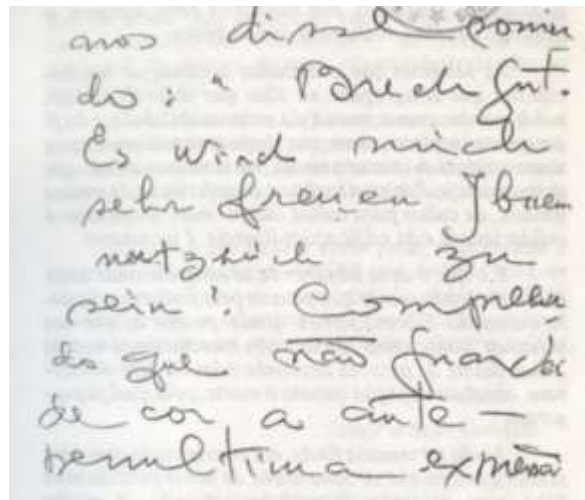 nos disse sorrin
do: " Brecht gut.
Es wird mich
sehr freuen Ihnen
nutzlich zu
sein". Compreen
do que não guardei
de cor a ante-
penultima expressão